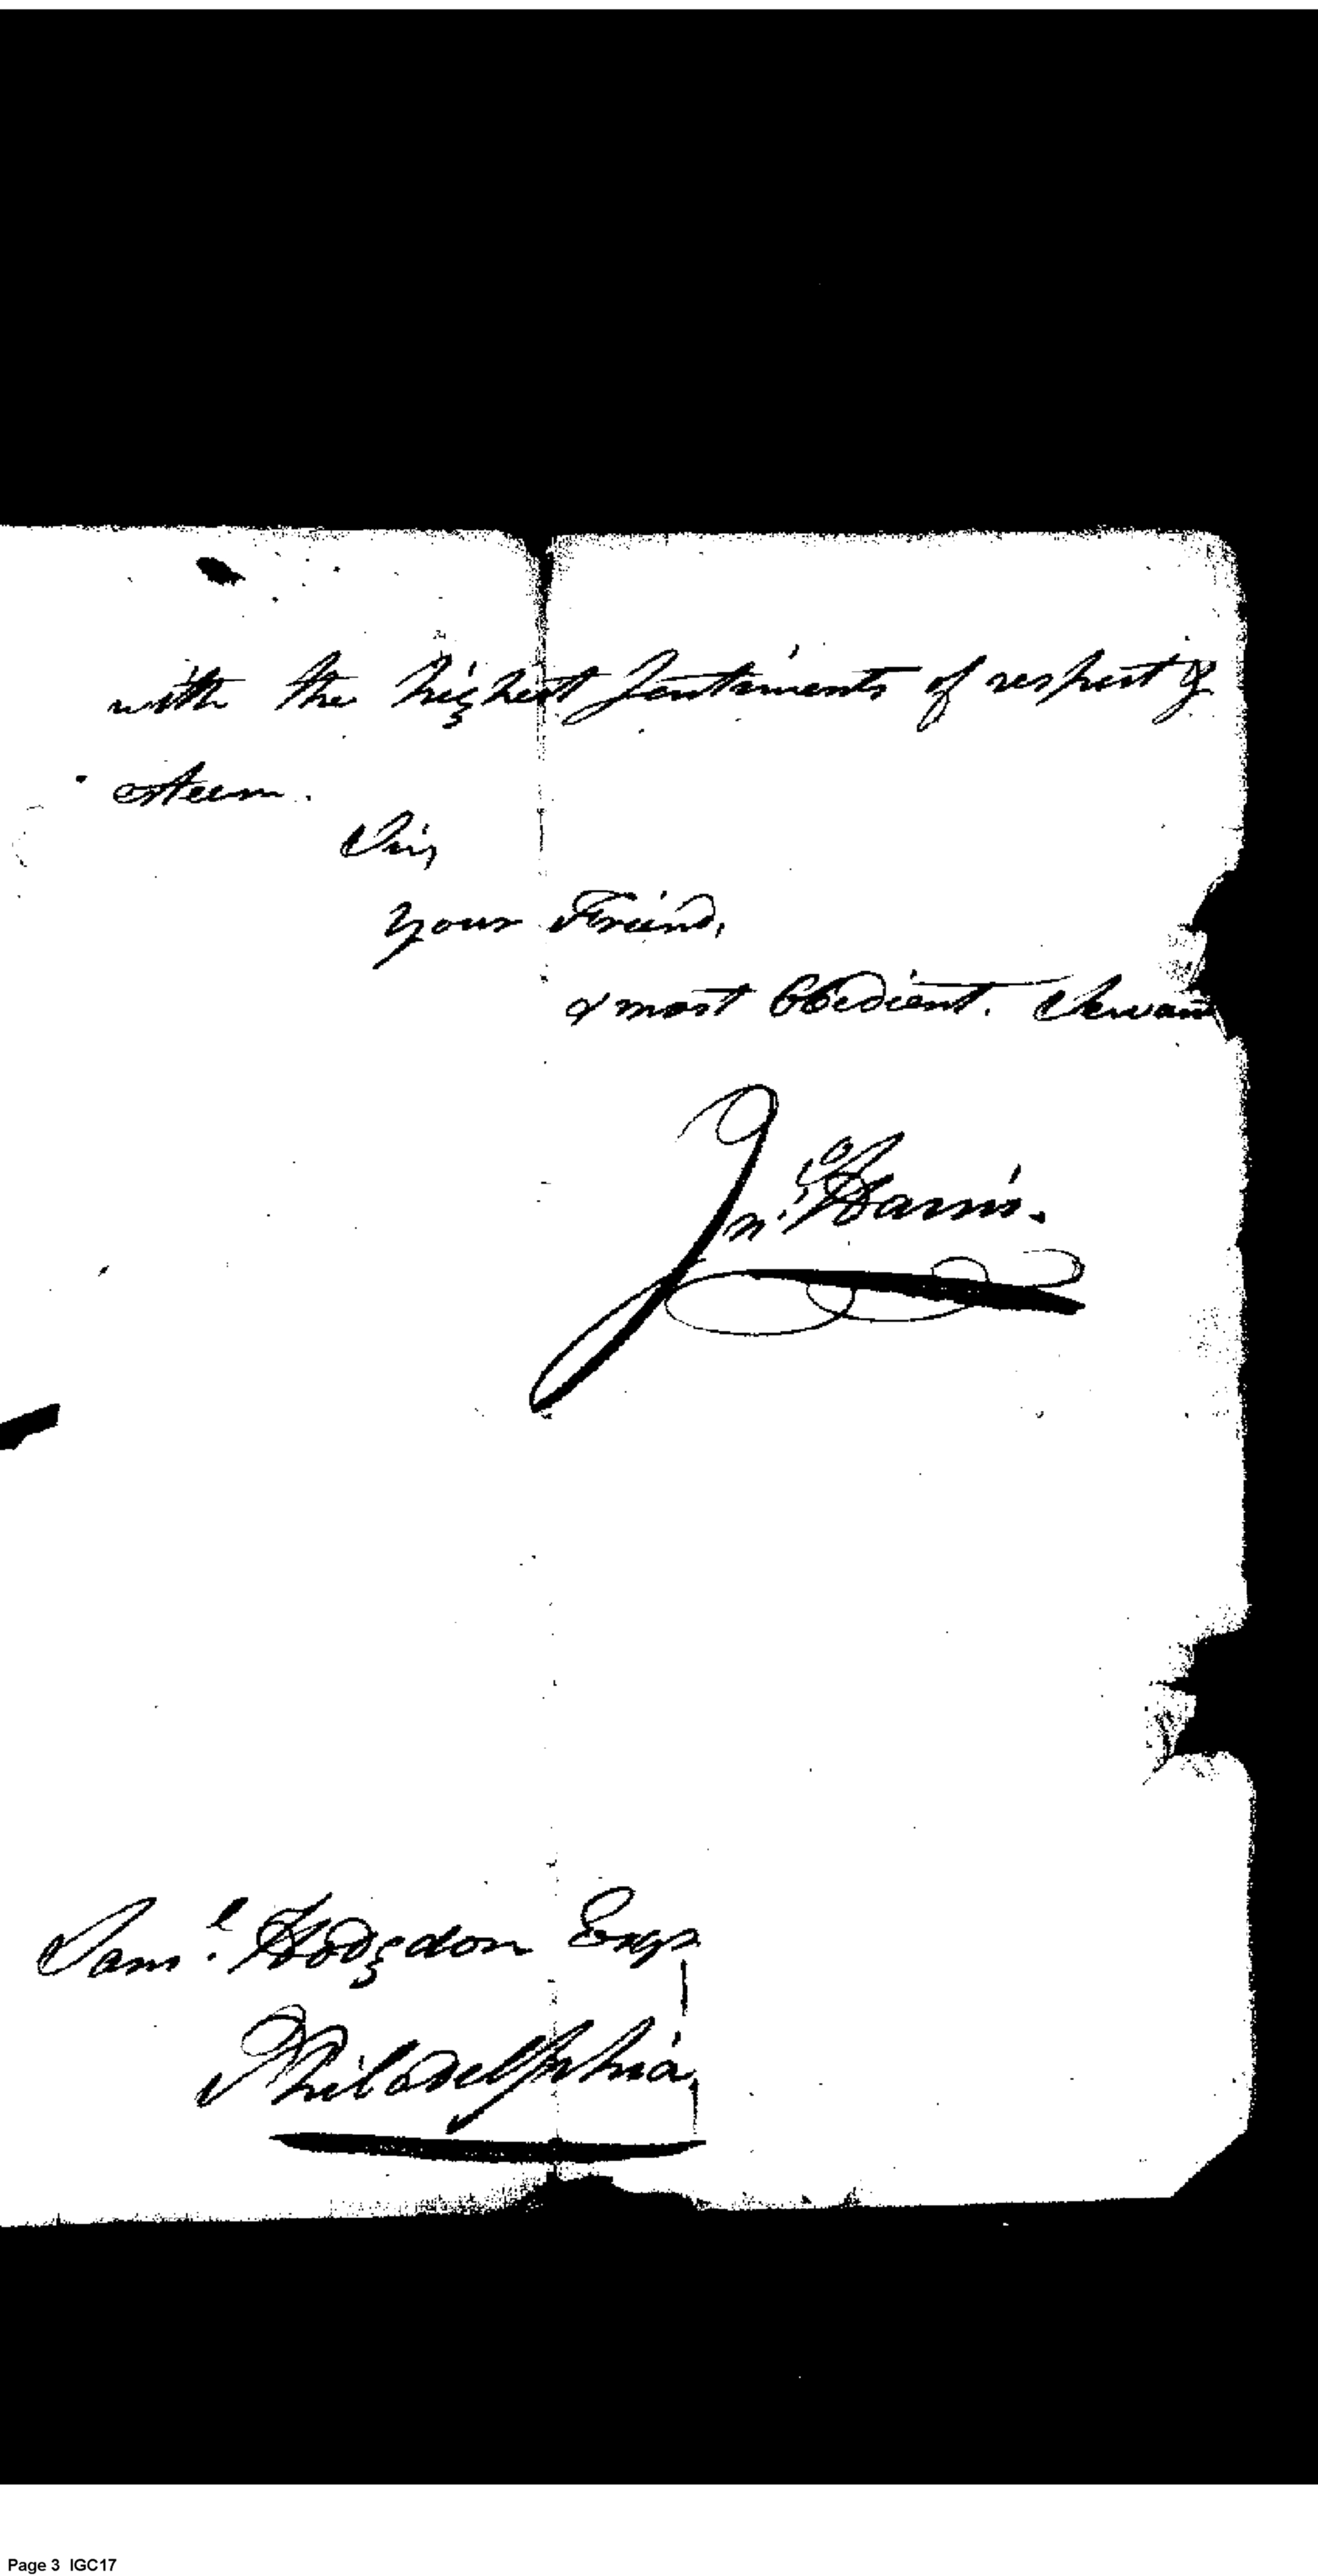 with the highest Sentiments of respect &
esteem.
Sir,
your Friend,
& most Obedient. Servant
Jno. Harris.
Saml. Hodgdon Esqr
Philadelphia
Page 3 IGC17